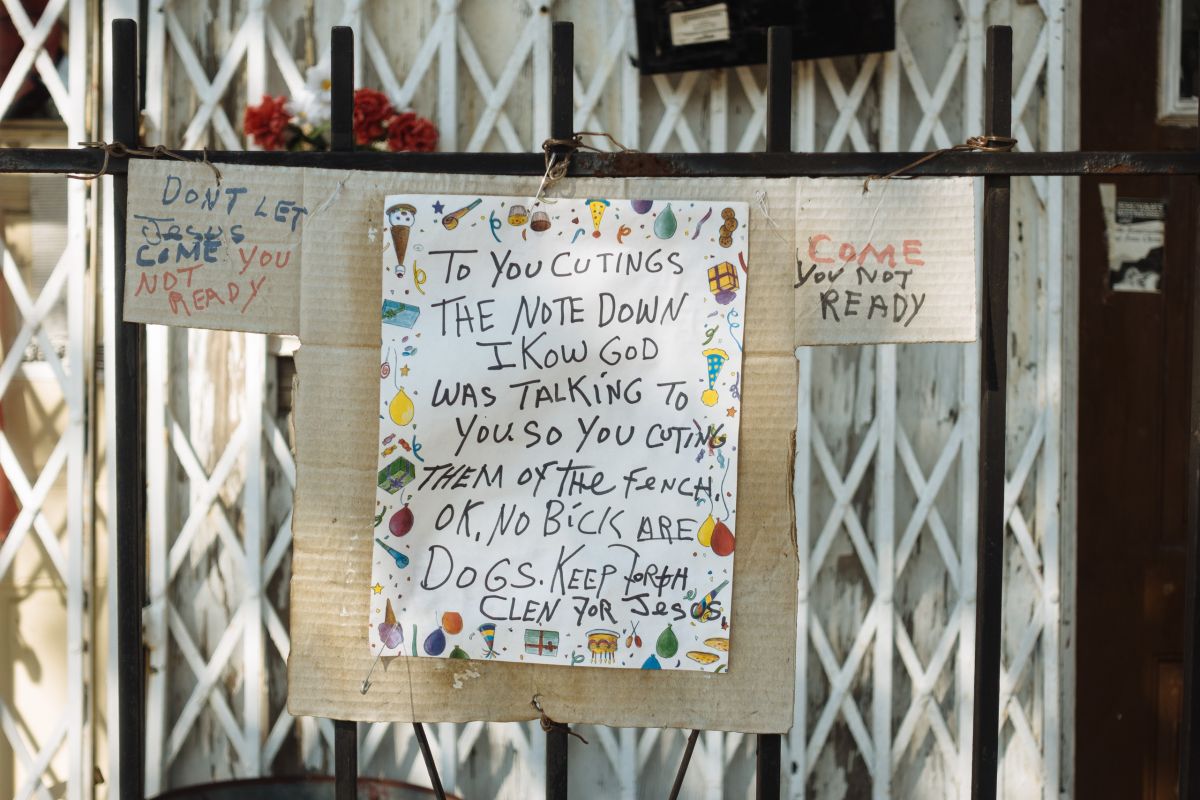 DONT LET
Jesus
COME YOU
NOT
READY
TO YOU CUTINGS
THE NOTE DOWN
I KOW GOD
WAS TALKING TO
YOU. SO YOU CUTING
THEM OF THE FENCH.
OK, NO BICK ARE
DOGS. KEEP FORTH
CLEN FOR Jesus
COME
YOU NOT
READY